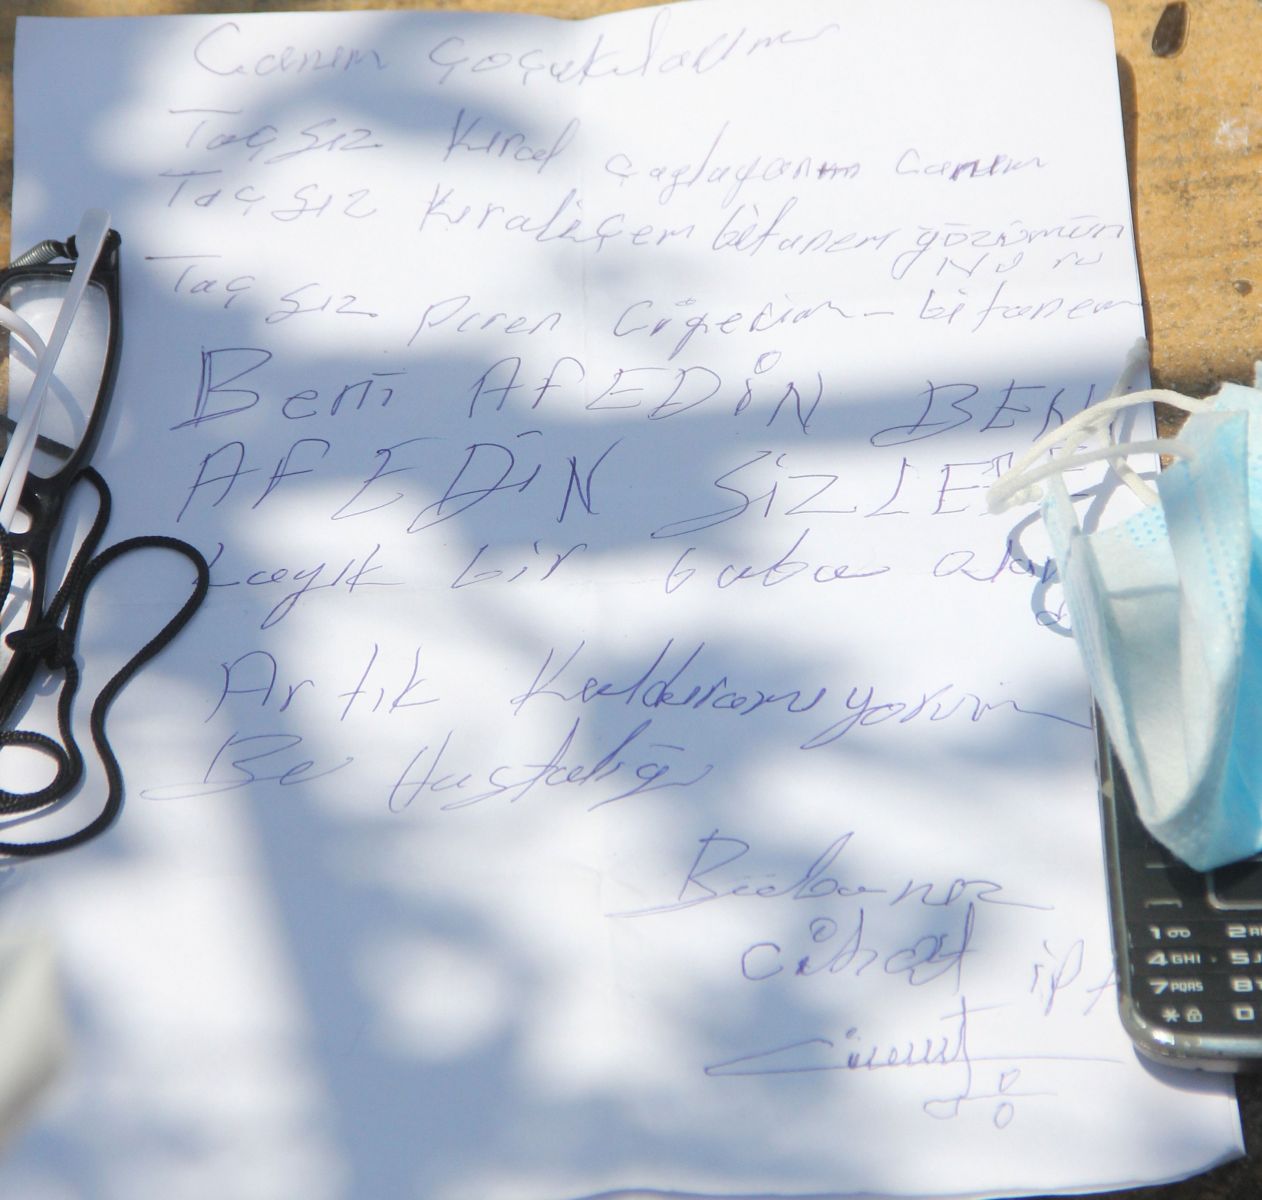 Canım çoçuklarım
Taç sız Kıral çaglayanım canım
Taç sız Kıraliçem bitanem gözümün
Nuru
Taç sız piren ciğerim - bitanem
Beni AFEDİN BENİ
AFEDİN SİZLERE
Layık bir baba
Artık Kaldıramıyorum
Be Hastalığı
Babanız
Cihat ip
1 2
4 GHI 5
7 PQRS 8
* 0